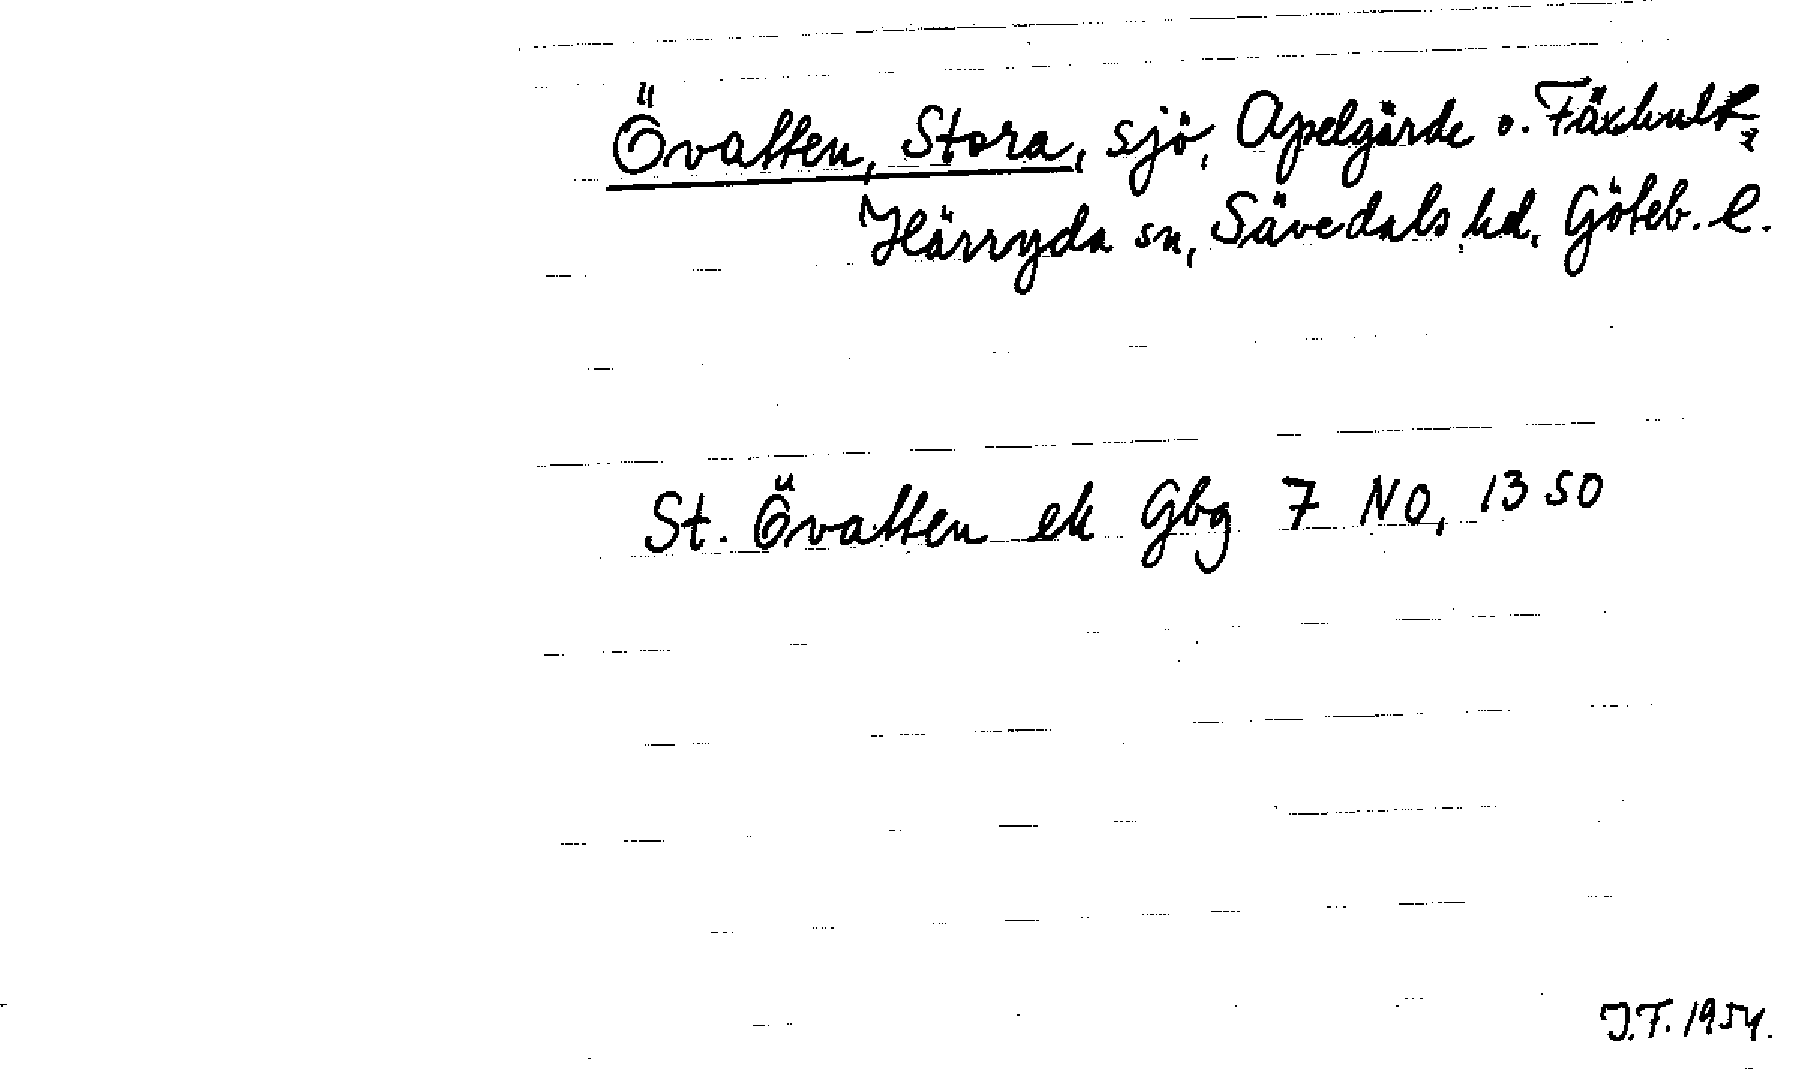 Övatten, Stora, sjö, Apelgärde o. Fäxhult,
Härryda sn, Sävedals hd, Göteb. l.
St. Övatten ek Gbg 7 NO, 1350
J.T. 1954.